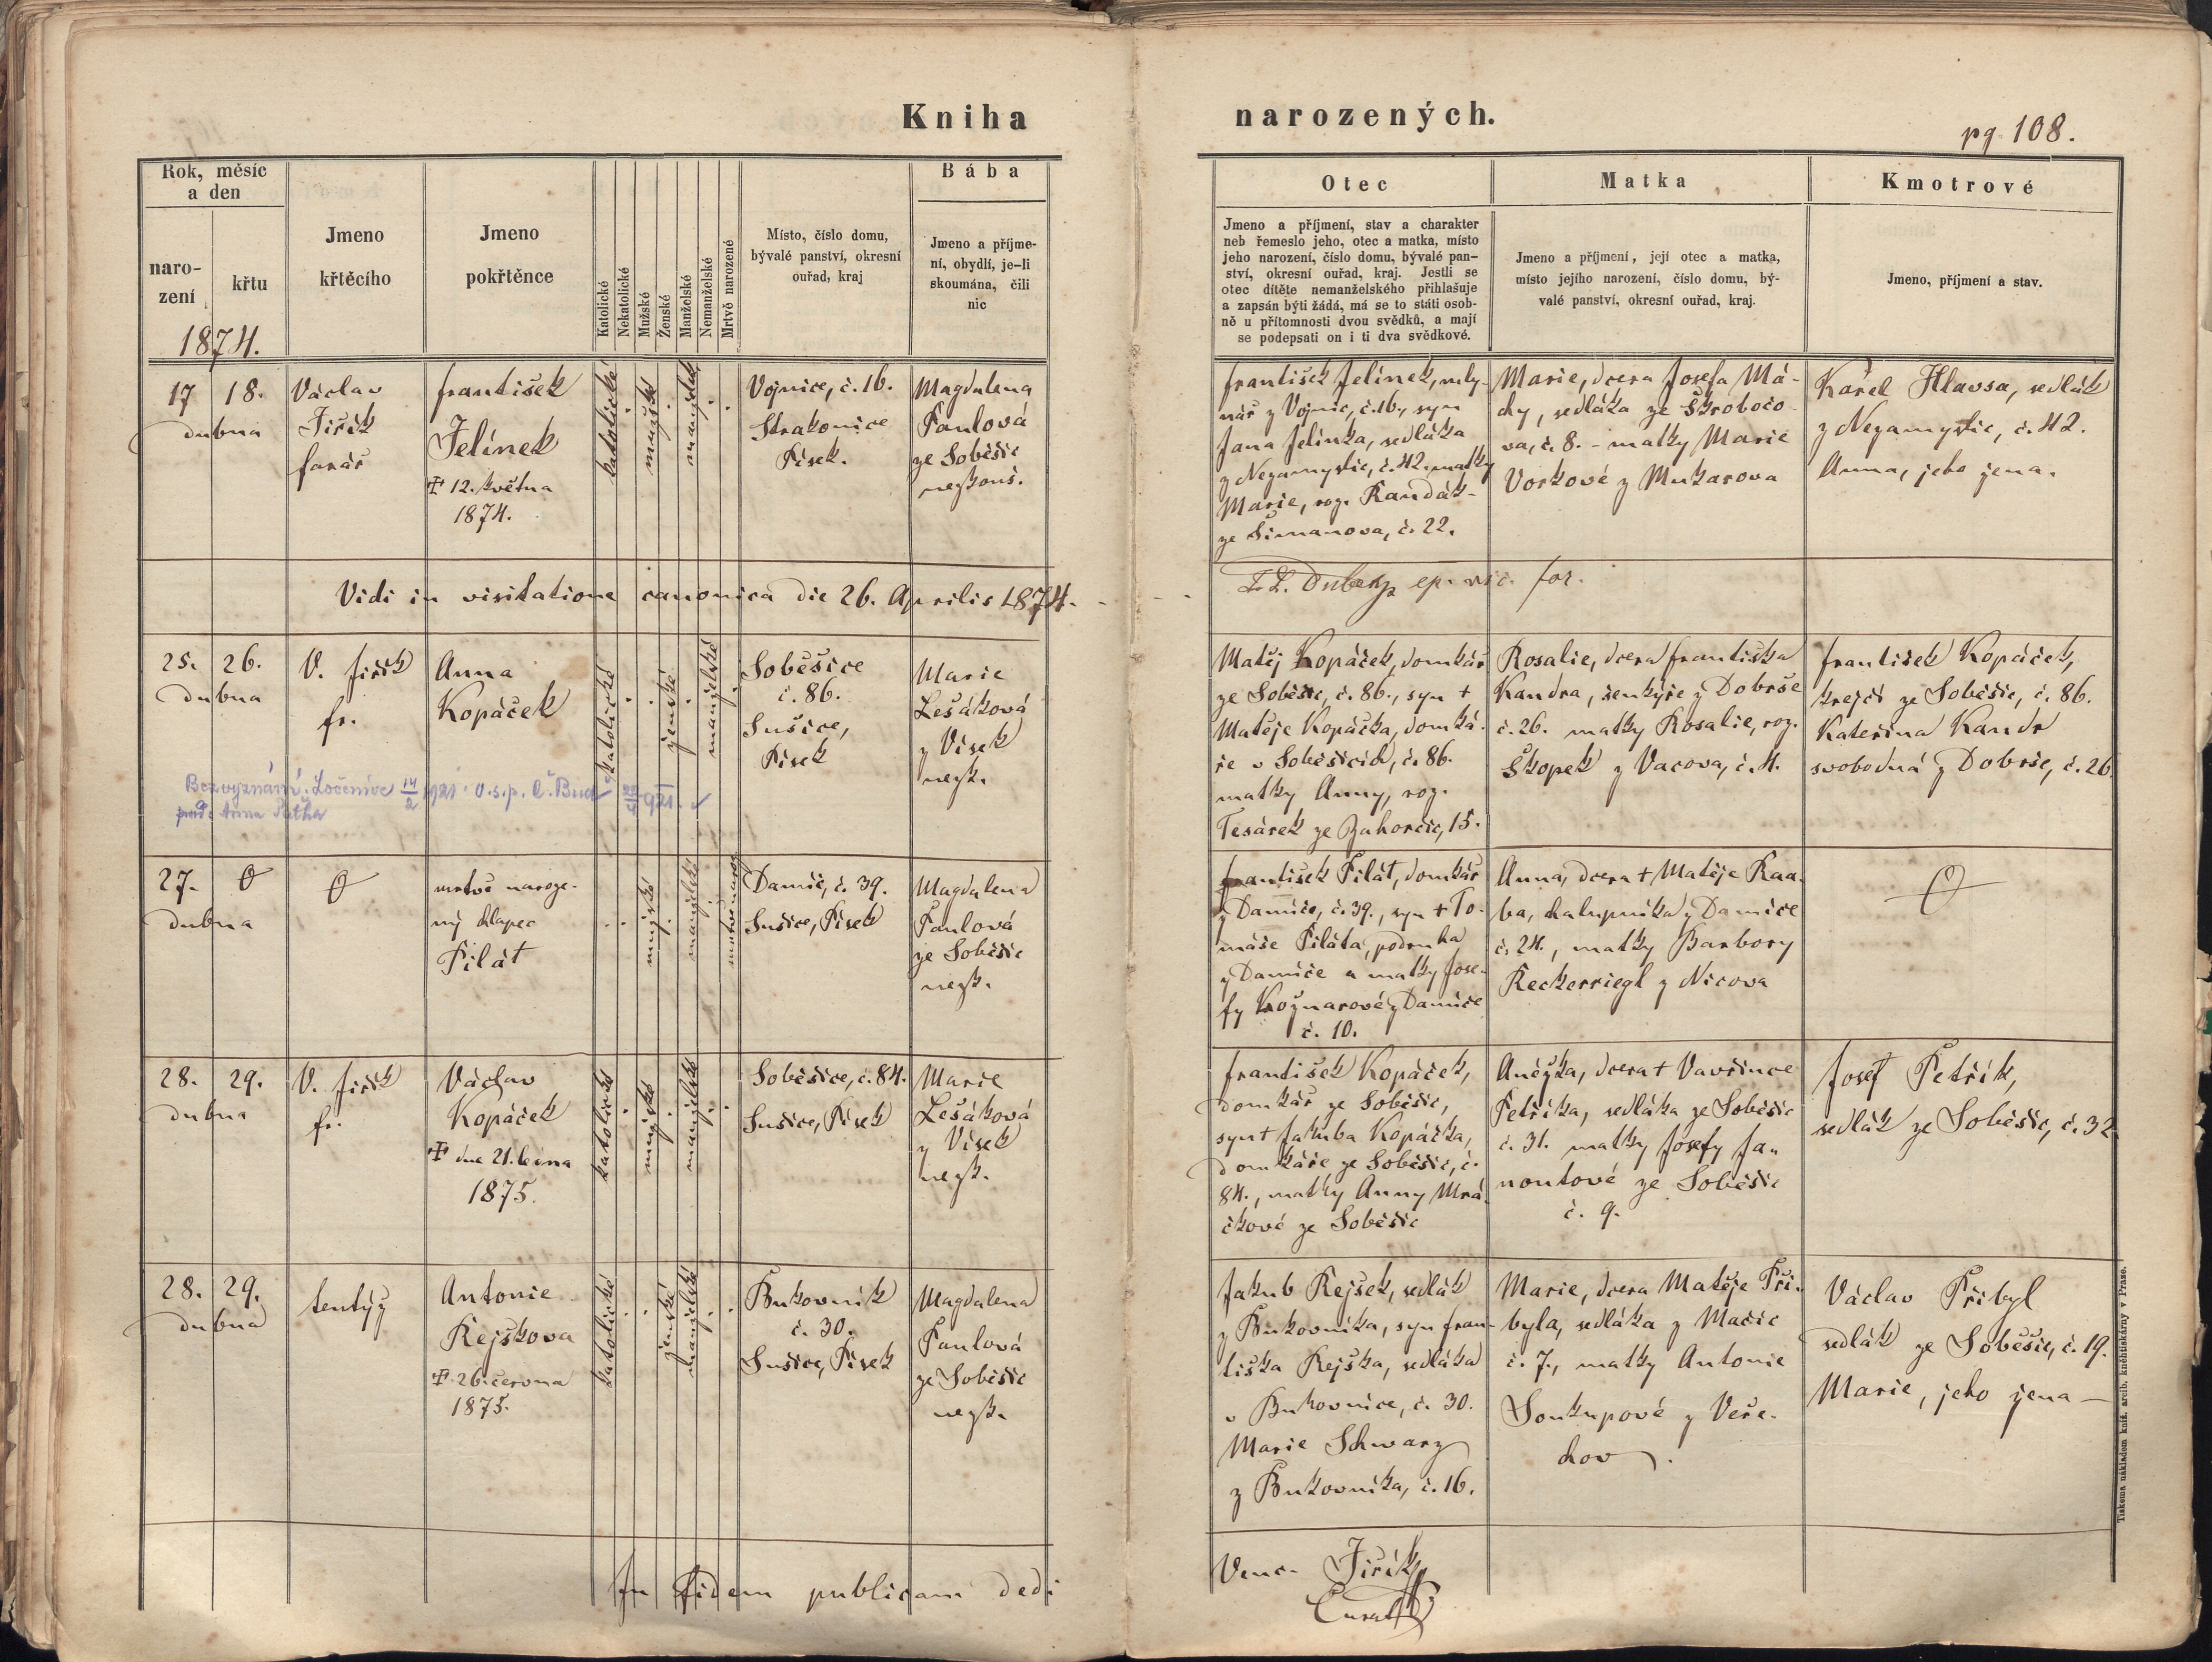 Kniha narozených.
pg. 108.
Rok, měsíc
a den
naro-
zení
křtu
1874.
Jmeno
křtěcího
Jmeno
pokřtěnce
Katolické
Nekatolické
Mužské
Ženské
Manželské
Nemanželské
Mrtvě narozené
Místo, číslo domu,
bývalé panství, okresní
ouřad, kraj
Bába
Jmeno a příjme-
ní, obydlí, je-li
skoumána, čili
nic
Otec
Jmeno a příjmení, stav a charakter
neb řemeslo jeho, otec a matka, místo
jeho narození, číslo domu, bývalé pan-
ství, okresní ouřad, kraj. Jestli se
otec dítěte nemanželského přihlašuje
a zapsán býti žádá, má se to státi osob-
ně u přítomnosti dvou svědků, a mají
se podepsati on i ti dva svědkové.
Matka
Jmeno a příjmení, její otec a matka,
místo jejího narození, číslo domu, bý-
valé panství, okresní ouřad, kraj.
Kmotrové
Jmeno, příjmení a stav.
17 18.
dubna
Václav
Jiřík
farář
František
Jelínek
✠ 12. května
1874.
katolické
mužské
manželské
Vojnice, č. 16.
Strakonice
Písek.
Magdalena
Pavlová
ze Soběšic
nezkouš.
František Jelínek, mly-
nář z Vojnic, č. 16., syn
Jana Jelínka, sedláka
z Nezamyslic, č. 42. matky
Marie, roz. Kandák-
ze Šimanova, č. 22.
Marie, dcera Josefa Má-
chy, sedláka ze Škrobočo
va, č. 8. - matky Marie
Vorkové z Mukařova
Karel Hlavsa, sedlák
z Nezamyslic, č. 42.
Anna, jeho žena.
Vidi in visitatione canonica die 26. Aprilis 1874.
ep. vic. for.
25. 26.
dubna
V. Jiřík
fr.
Anna
Kopáček
katolické
ženské
manželské
Soběšice
č. 86.
Sušice,
Písek
Marie
Lešáková
z Vísek
nezk.
Matěj Kopáček, domkář
ze Soběšic, č. 86., syn †
Matěje Kopáčka, domká-
ře v Soběšicích, č. 86.
matky Anny, roz.
Tesárek ze Zahorčic, 15.
Rosalie, dcera Františka
Kandra, šenkýře z Dobrše
č. 26. matky Rosalie, roz.
Skopek z Vacova, č. 4.
František Kopáček,
krejčí ze Soběšic, č. 86.
Kateřina Kandr
svobodná z Dobrše, č. 26
Bez vyznání. Ločenice 14/2 1921. O.s.p. Č. Buď.
27.
dubna
mrtvě naroze-
ný chlapec
Pilát
mužské
manželské
mrtvě naroz.
Damíč, č. 39.
Sušice, Písek
Magdalena
Pavlová
ze Soběšic
nezk.
František Pilát, domkář
z Damíče, č. 39., syn † To-
máše Piláta, podruha
z Damíče a matky Jose-
fy Kožnarové z Damíče
č. 10.
Anna, dcera † Matěje Raa-
ba, chalupníka z Damíče
č. 24., matky Barbory
Reckerriegl z Nicova
28. 29.
dubna
V. Jiřík
fr.
Václav
Kopáček
✠ dne 21. ledna
1875.
katolické
mužské
manželské
Soběšice, č. 84.
Sušice, Písek
Marie
Lešáková
z Vísek
nezk.
František Kopáček,
domkář ze Soběšic,
syn † Jakuba Kopáčka,
domkáře ze Soběšic, č.
84., matky Anny Mrá-
čkové ze Soběšic
Anežka, dcera † Vavřince
Petříka, sedláka ze Soběšic
č. 31. matky Josefy Ja-
noutové ze Soběšic
č. 9.
Josef Petřík,
sedlák ze Soběšic, č. 32
28. 29.
dubna
tentýž
Antonie
Rejškova
✠ 26. června
1875.
katolické
ženské
manželské
Bukovník
č. 30.
Sušice, Písek
Magdalena
Pavlová
ze Soběšic
nezk.
Jakub Rejšek, sedlák
z Bukovníka, syn Fran-
tiška Rejška, sedláka
v Bukovníce, č. 30.
Marie Schwarz
z Bukovníka, č. 16.
Marie, dcera Matěje Při-
byla, sedláka z Mačic
č. 7., matky Antonie
Soukupové z Veře-
chov.
Václav Přibyl
sedlák ze Soběšic, č. 19.
Marie, jeho žena —
In fidem publicam dedi
Venc. Jiřík
Curat
Tiskem a nákladem kníž. arcib. kněhtiskárny v Praze.